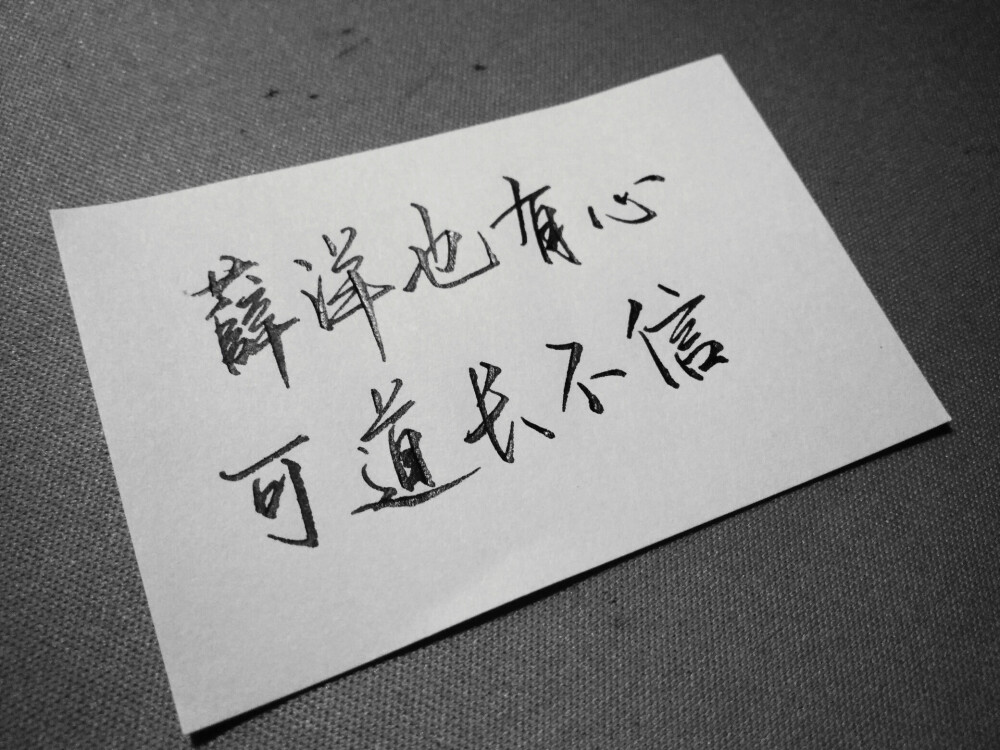 薛洋也有心
可道长不信